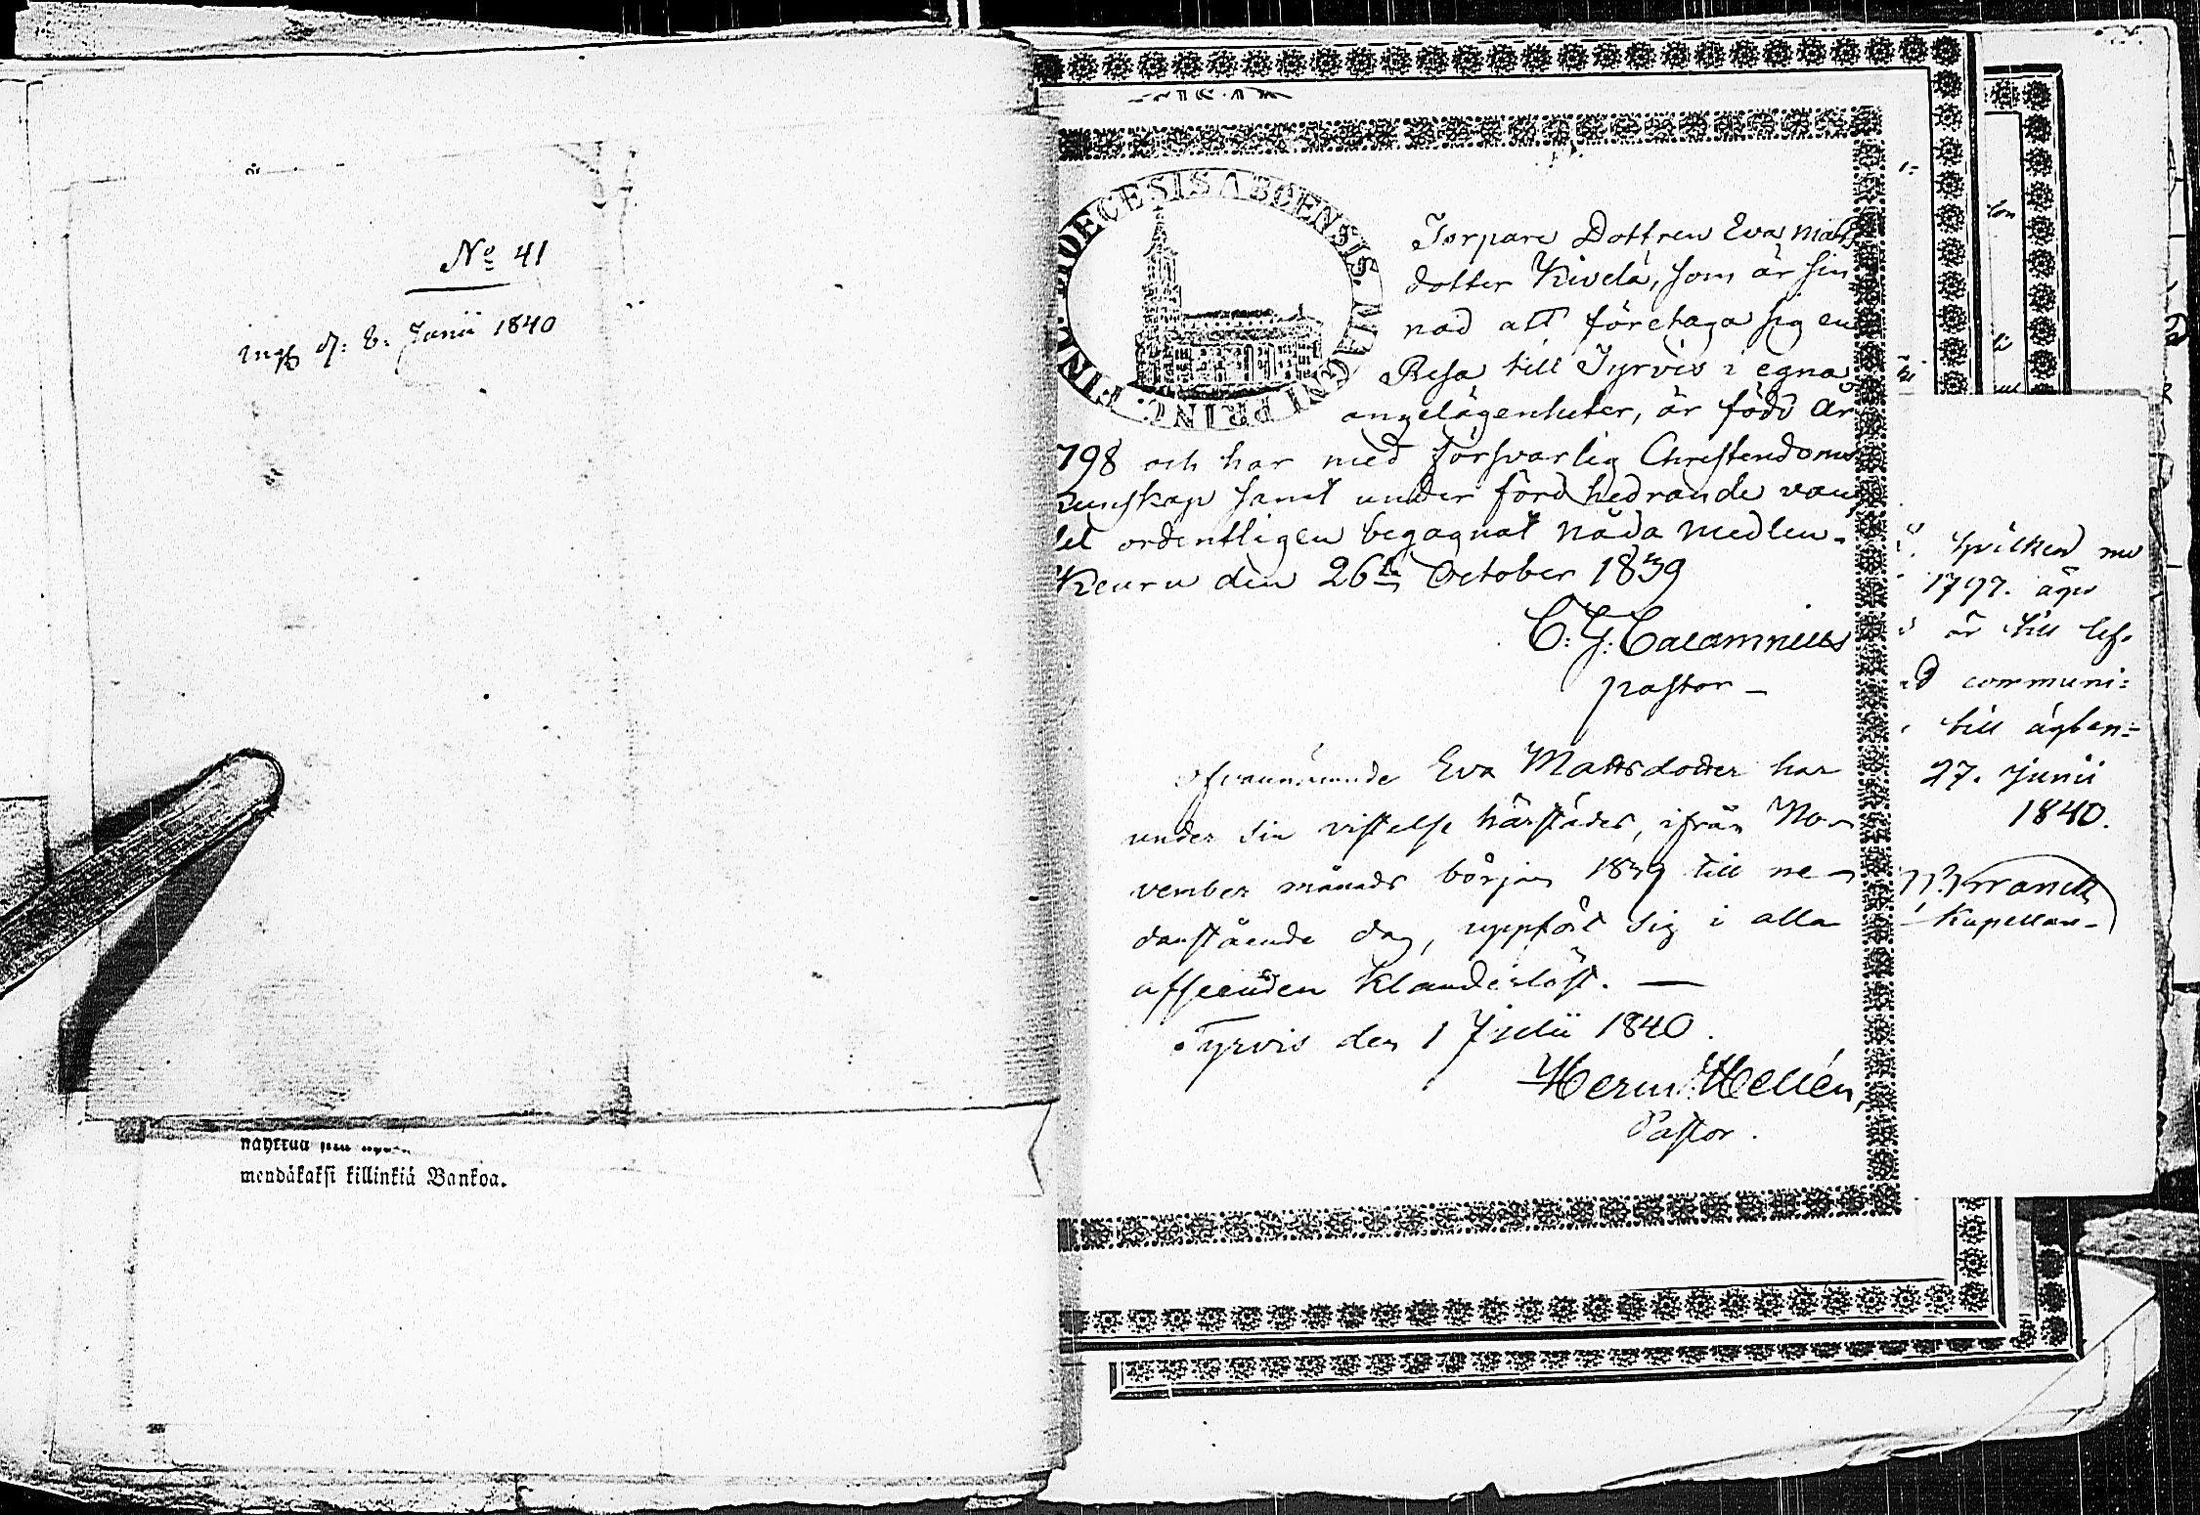 No 41
d: 8. Junii 1840
mendäkaksi killinkiä Bankoa.
DIOECESIS ABOENSIS. MAGNI PRINC. FINL.
Torpare Dottren Eva Matts
dotter Kivelä, som är sin
nad att företaga sig en
Resa till Tyrvis i egna
angelägenheter, är född år
798 och har med försvarlig Christendoms
kunskap samt under förd hedrande van
del ordentligen begagnat nåda medlen.
Keuru den 26te October 1839
C. G. Calamnius
pastor
ofvannämnde Eva Mattsdotter har
under sin vistelse härstädes, ifrån No-
vember månads början 1839 till ne-
danstående dag, uppfört sig i alla
afseenden klanderlöst. —
Tyrvis den 1 Julii 1840.
Herm. Hellén,
Pastor.
hvilken
1797. äger
är till
communi-
till
27. Junii
1840.
Kapellan